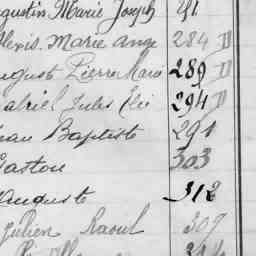 ugustin Marie Joseph 41.
lexis. Marie Ange 284 D
uguste Pierre Marie 289 D
abriel Jules Elie 294 D
ean Baptiste 291
Gaston 303
Auguste 312
Julien Raoul 307